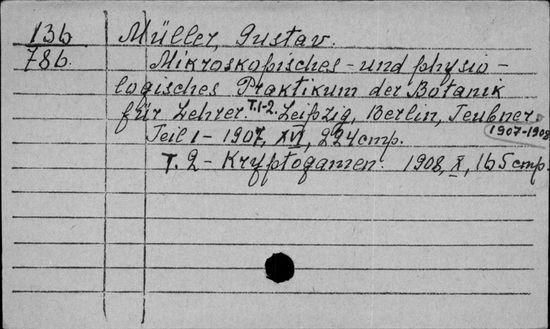 136 Müller, Gustav.
786. Mikroskopisches - und physio-
logisches Praktikum der Botanik
für Lehrer. T.1-2. Leipzig, Berlin, Teubner.
1907-1908
Teil 1 - 1907, XVI, 224 стр.
T. 2 - Kryptogamen. 1908, X, 165 стр.